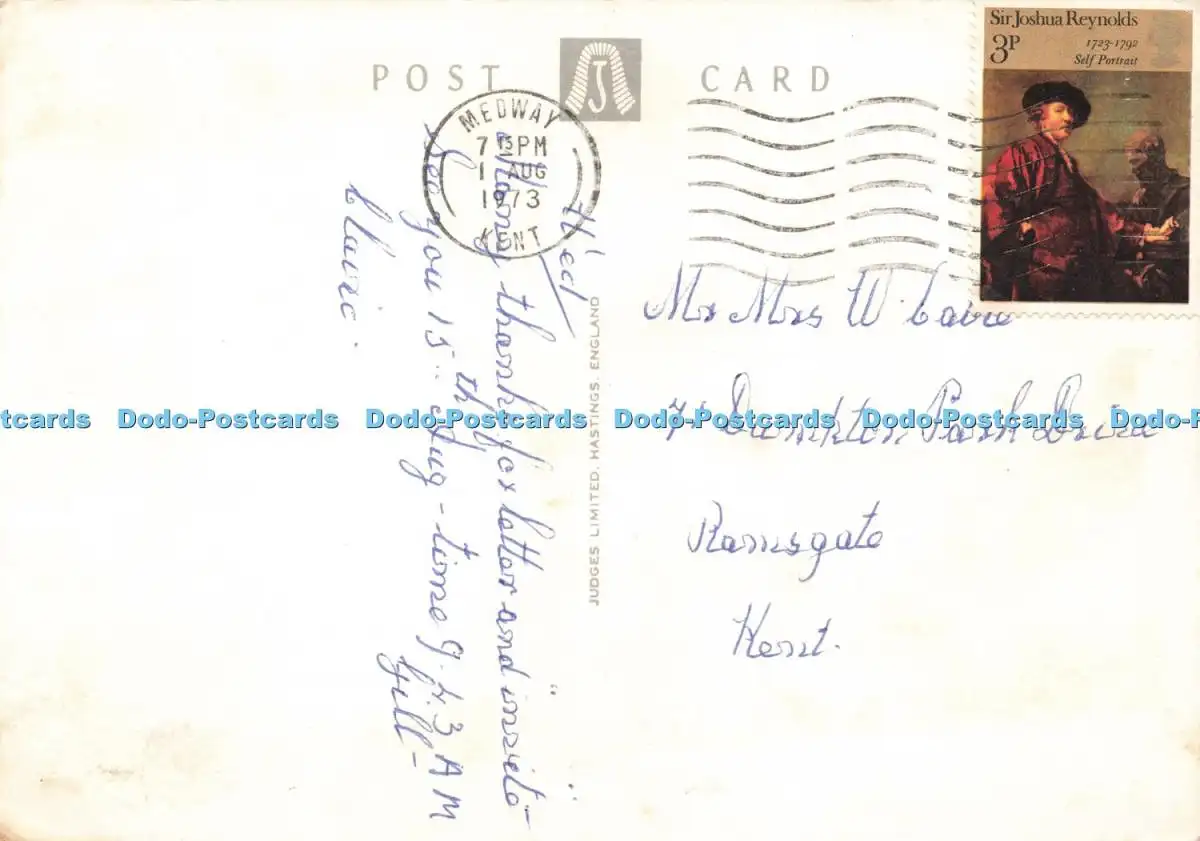 POST J CARD
Sir Joshua Reynolds
3P
1723-1792
Self Portrait
MEDWAY
7 15 PM
1 AUG
1973
KENT
Wed
Many thanks for letter and invite-
See you 15th Aug - time 9.43 AM
Gill -
JUDGES LIMITED, HASTINGS, ENGLAND
Mr Mrs W
Park Drive
Ramsgate
Kent.
Dodo-Postcards Dodo-Postcards Dodo-Postcards Dodo-Postcards